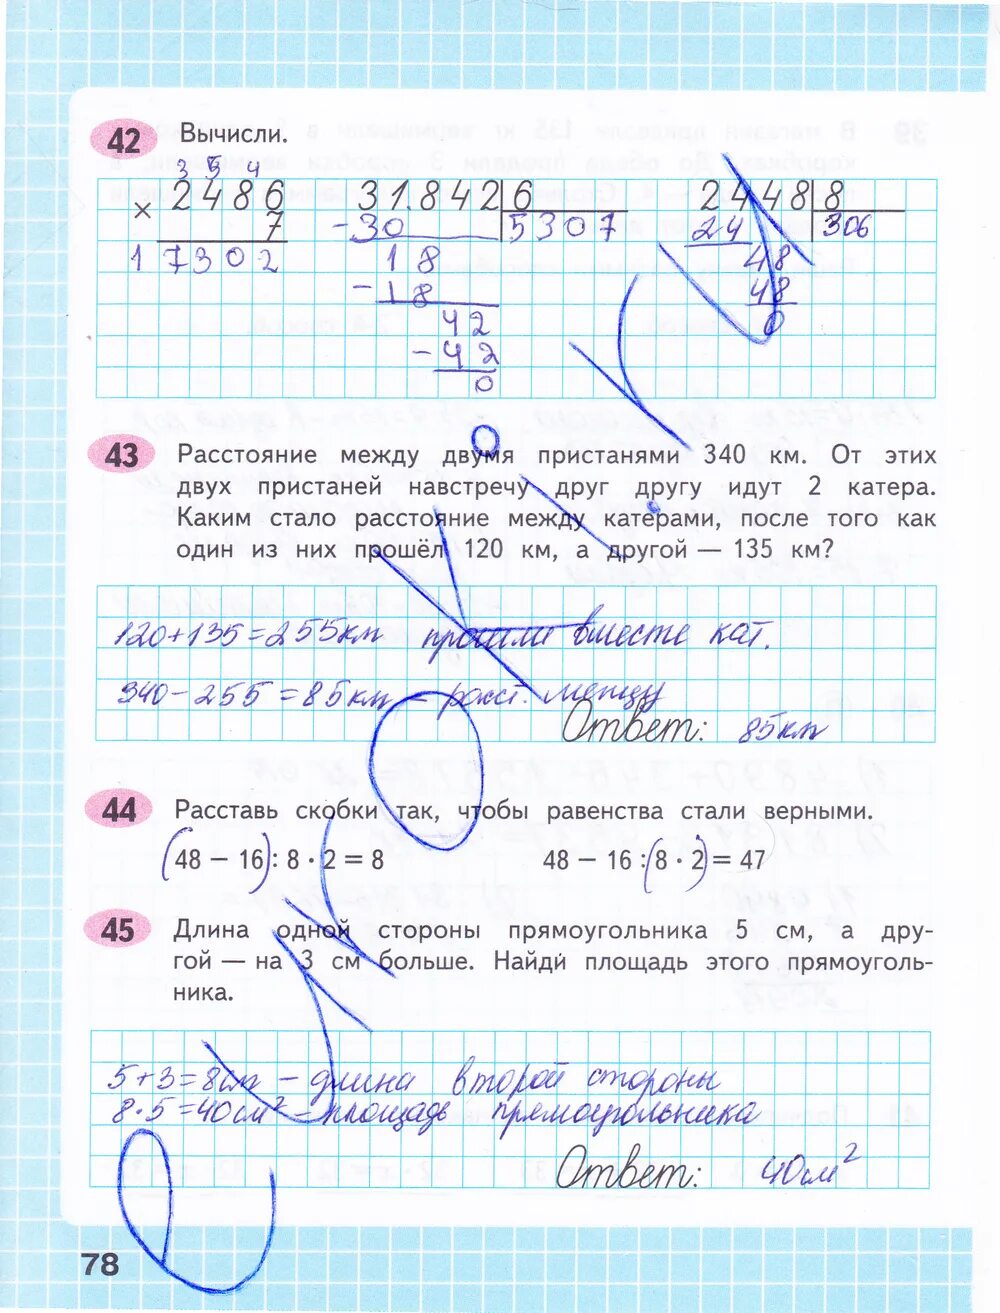 42 Вычисли.
3 5 4
2486 31.842 6 2448 8
× 7 – 30 5307 24 306
17302 18 48
– 18 48
42 0
– 42
0
43 Расстояние между двумя пристанями 340 км. От этих
двух пристаней навстречу друг другу идут 2 катера.
Каким стало расстояние между катерами, после того как
один из них прошёл 120 км, а другой — 135 км?
120+135=255км прошли вместе кат.
340-255=85км – расст. между
Ответ: 85км
44 Расставь скобки так, чтобы равенства стали верными.
(48 – 16) : 8 · 2 = 8 48 – 16 : (8 · 2) = 47
45 Длина одной стороны прямоугольника 5 см, а дру-
гой — на 3 см больше. Найди площадь этого прямоуголь-
ника.
5+3=8см – длина второй стороны
8·5=40см² – площадь прямоугольника
Ответ: 40см²
78